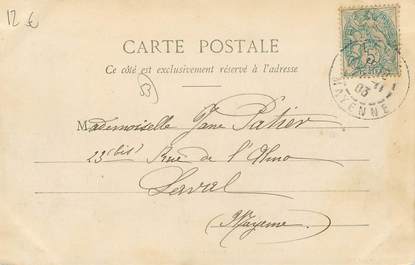 12 €
CARTE POSTALE
Ce côté est exclusivement réservé à l'adresse
53
Mademoiselle Jane
23 (bis) Rue de l'Alma
Laval
(Mayenne)
5
MAYENNE
03